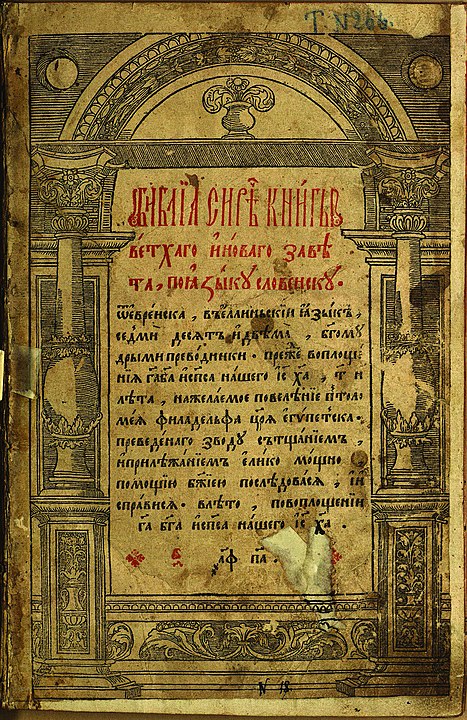 Т N 266.
БИБЛІѦ СИРѢЧЬ КНИГЫ
ветхаго и новаго завѣ
та, поꙗзыку словенску.
ѿеврейска, въеллиньскїи ꙗзыкъ,
седми десѧтъ и двѣма, бг҃ому
дрыми преводники. преже воплоще
нїѧ га҃ бга҃ и сп҃са нашего іс҃ ха҃, т҃ и
лѣта, нажелаемое повелѣнїе птоло
меѧ филаделфа црѧ҃ египетска.
преведенаго зводу сътщанїемъ,
и прилѣжанїемъ елико мощно
помощїю бж҃їею послѣдовасѧ, и
исправисѧ. влѣто, повоплощенїи
га҃ бга҃ и сп҃са нашего іс҃ ха҃.
҂аф па.
N 18